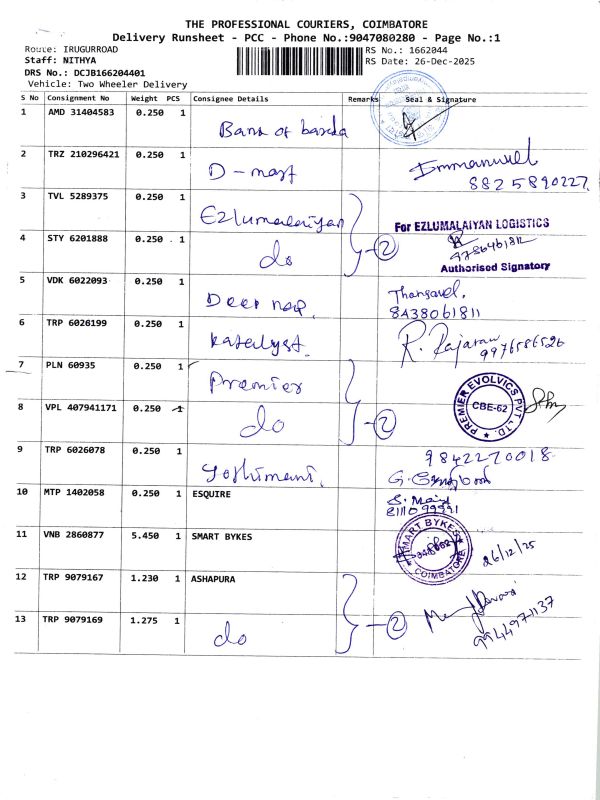 THE PROFESSIONAL COURIERS, COIMBATORE
Delivery Runsheet - PCC - Phone No.:9047080280 - Page No.:1
Route: IRUGURROAD
RS No.: 1662044
Staff: NITHYA
RS Date: 26-Dec-2025
DRS No.: DCJB166204401
Vehicle: Two Wheeler Delivery
S No Consignment No Weight PCS Consignee Details Remarks Seal & Signature
1 AMD 31404583 0.250 1 Bank of baroda
2 TRZ 210296421 0.250 1 D-mart Emmanuvel
8825890227
3 TVL 5289375 0.250 1 Ezlumalaiyan For EZLUMALAIYAN LOGISTICS
4 STY 6201888 0.250 1 do 2
Authorised Signatory
5 VDK 6022093 0.250 1 Thangavel,
8438061811
6 TRP 6026199 0.250 1 Katalyst. R. Rajaram
9976586526
7 PLN 60935 0.250 1 Premier PREMIER EVOLVICS PVT LTD.
CBE-62
8 VPL 407941171 0.250 1 do 2
9 TRP 6026078 0.250 1 9842270018
10 MTP 1402058 0.250 1 ESQUIRE S. Mani
11 VNB 2860877 5.450 1 SMART BYKES SMART BYKES
COIMBATORE
26/12/25
12 TRP 9079167 1.230 1 ASHAPURA
2
13 TRP 9079169 1.275 1 do 9944971137